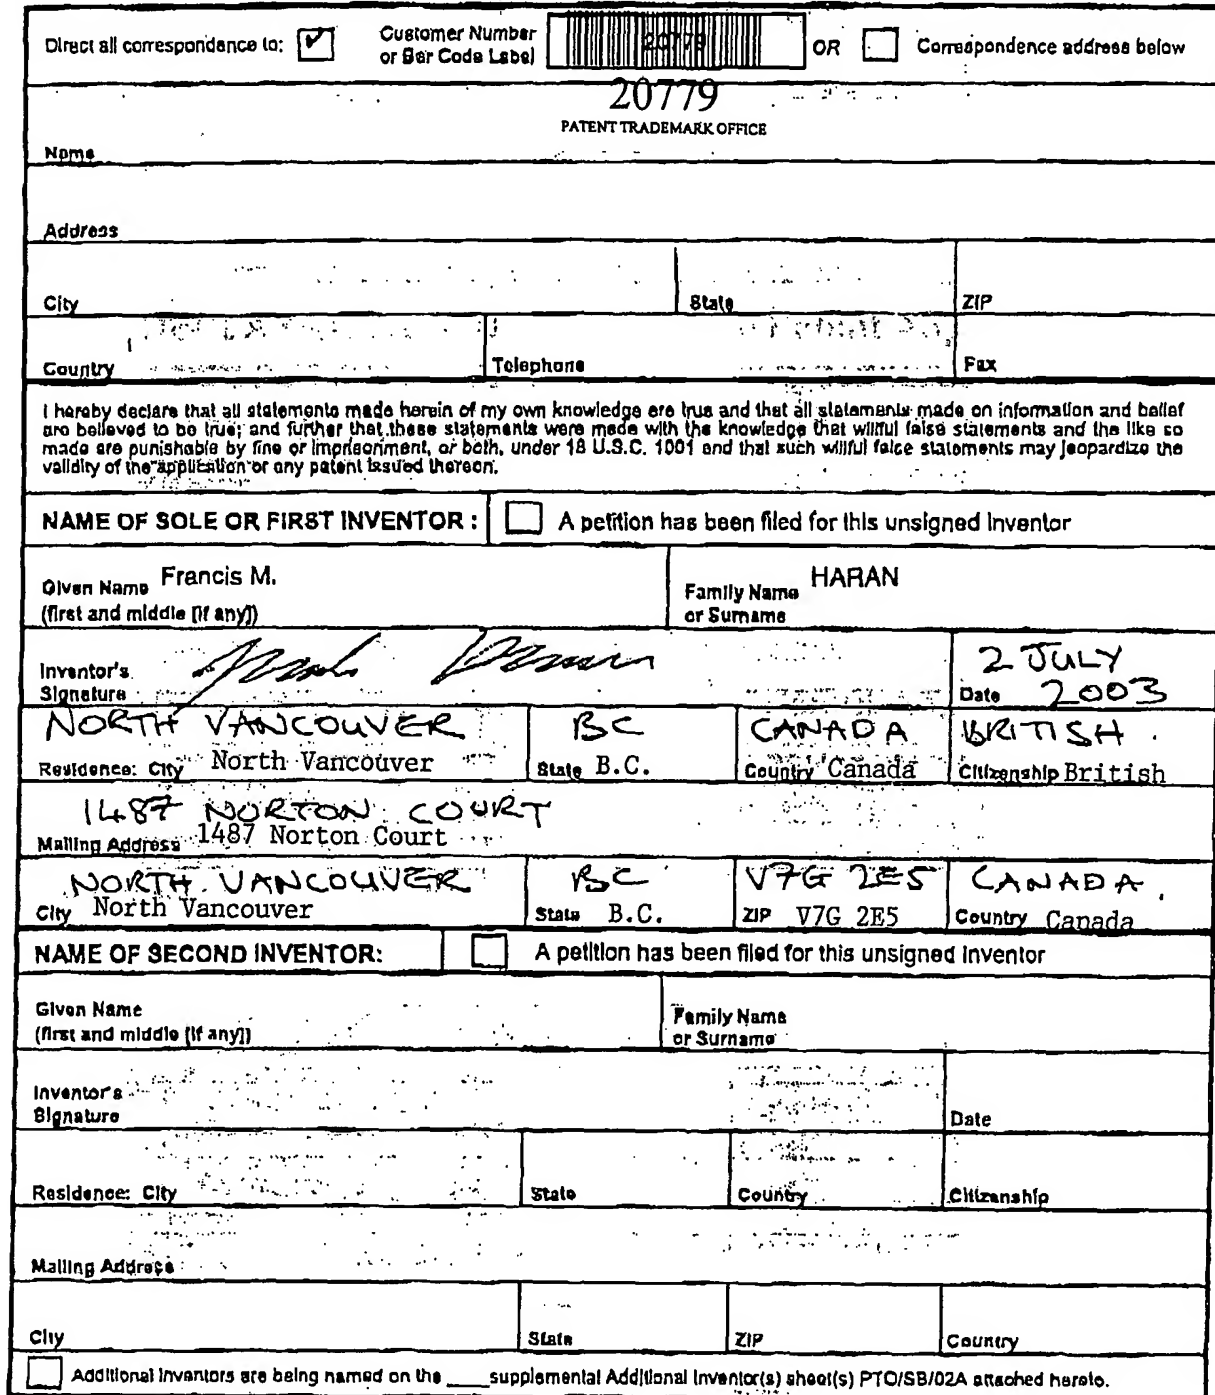 Direct all correspondence to: ✓ Customer Number or Bar Code Label 20779 OR Correspondence address below
20779
PATENT TRADEMARK OFFICE
Name
Address
City State ZIP
Country Telephone Fax
I hereby declare that all statements made herein of my own knowledge are true and that all statements made on information and belief
are believed to be true; and further that these statements were made with the knowledge that willful false statements and the like so
made are punishable by fine or imprisonment, or both, under 18 U.S.C. 1001 and that such willful false statements may jeopardize the
validity of the application or any patent issued thereon.
NAME OF SOLE OR FIRST INVENTOR : A petition has been filed for this unsigned inventor
Given Name Francis M. Family Name HARAN
(first and middle [if any]) or Surname
Inventor's Signature 2 JULY
Date 2003
NORTH VANCOUVER BC CANADA BRITISH.
Residence: City North Vancouver State B.C. Country Canada Citizenship British
1487 NORTON COURT
Mailing Address 1487 Norton Court
NORTH VANCOUVER BC V7G 2E5 CANADA.
City North Vancouver State B.C. ZIP V7G 2E5 Country Canada
NAME OF SECOND INVENTOR: A petition has been filed for this unsigned inventor
Given Name Family Name
(first and middle [if any]) or Surname
Inventor's
Signature Date
Residence: City State Country Citizenship
Mailing Address
City State ZIP Country
Additional inventors are being named on the ____ supplemental Additional Inventor(s) sheet(s) PTO/SB/02A attached hereto.